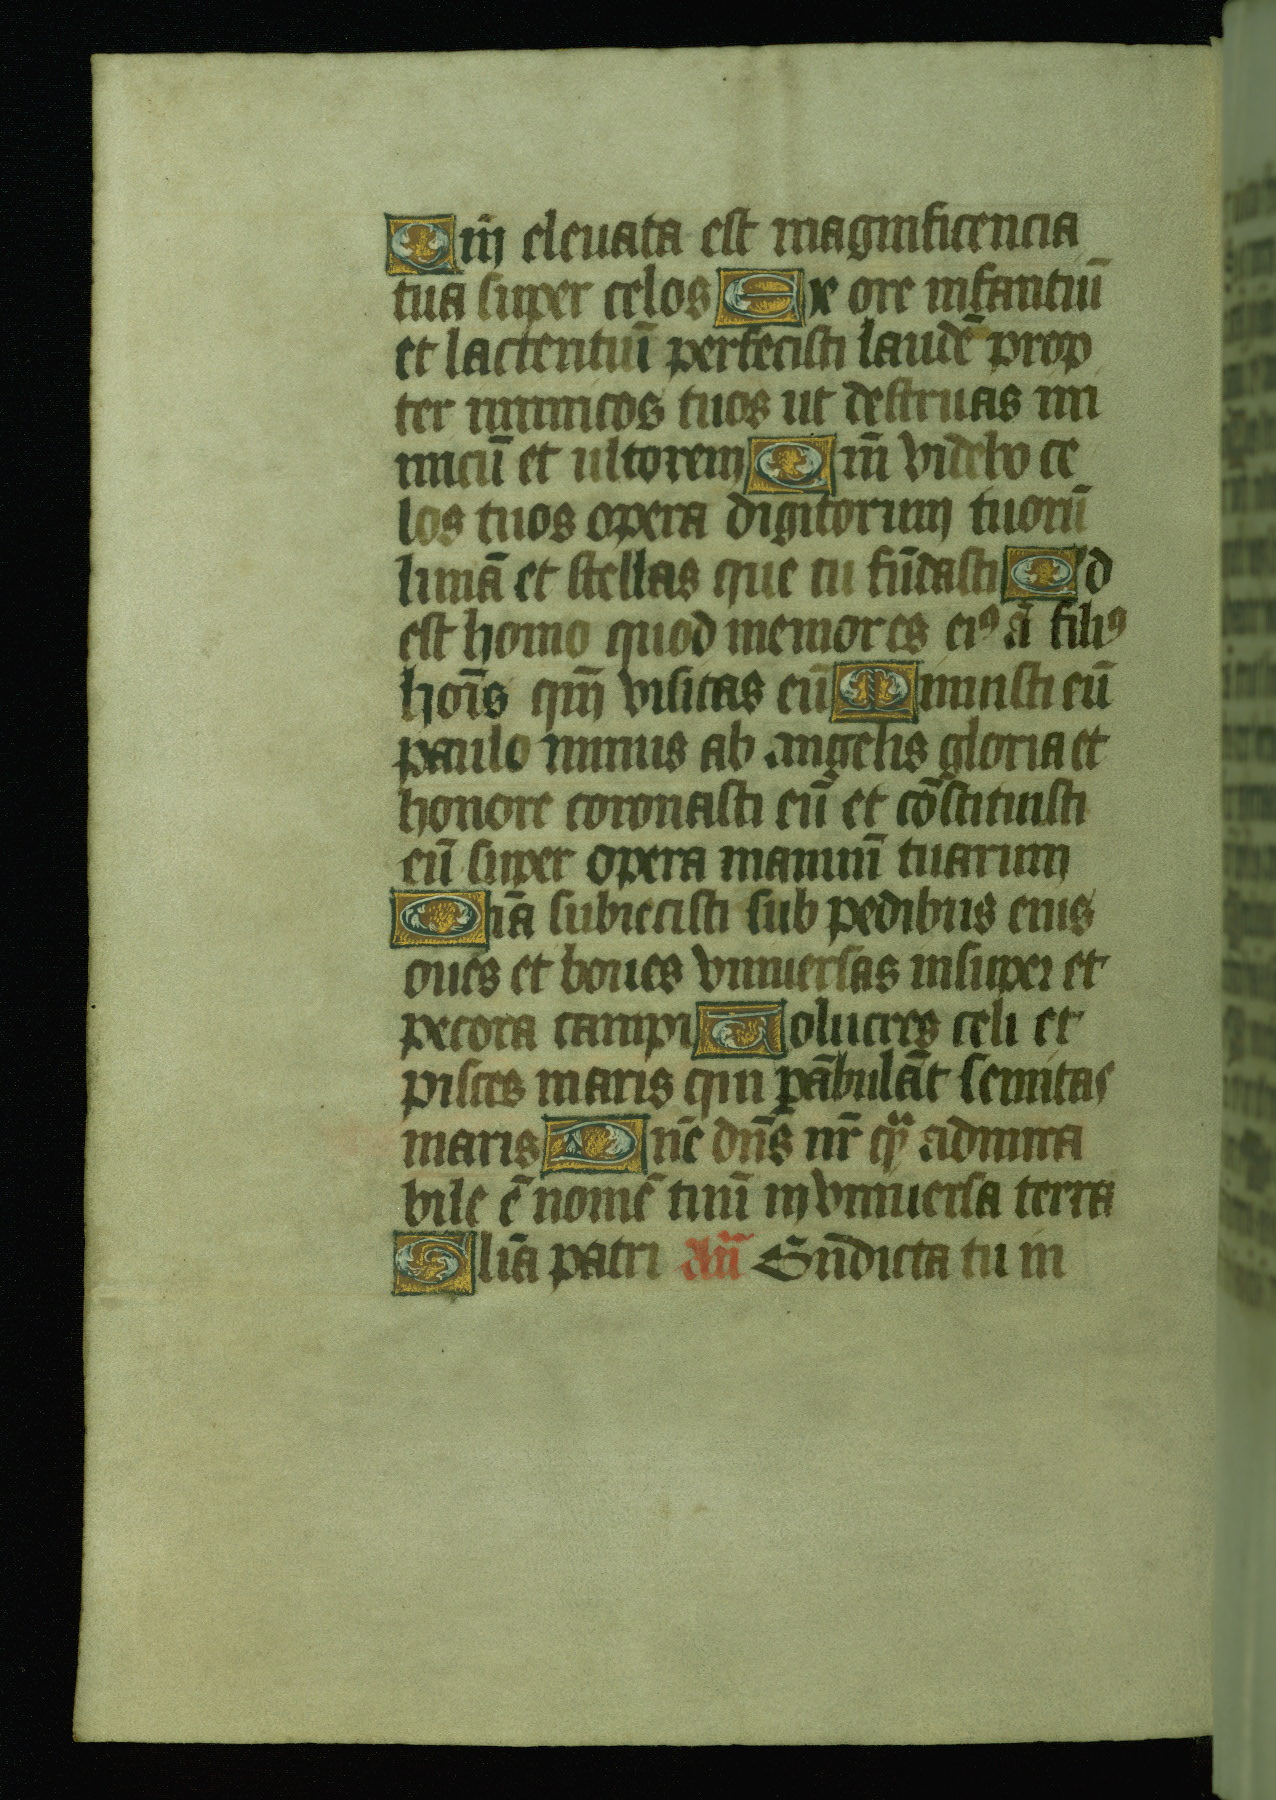 Qm̄ eleuata est magnificencia
tua super celos Ex ore infantiū
et lactentiuī perfecisti laudē prop
ter inimicos tuos ut destruas ini
micū et ultorem Qm̄ videbo ce
los tuos opera digitorum tuorū
lunā et stellas que tu fūdasti Qd
est homo quod memor es eiꝰ a᷑ filiꝰ
hoīs qm̄ visitas eū Minuisti eū
paulo minus ab angelis gloria et
honore coronasti eū et cōstituisti
eū super opera manuū tuarum
Oīa subiecisti sub pedibus eius
oues et boues vniuersas insuper et
pecora campi Volucres celi et
pisces maris qui pābulāt semitas
maris Dn̄e dn̄s nr̄ q̈ȝ admira
bile ē nomē tuū in vniuersa terra
Glīa patri an̄ Bn̄dicta tu in